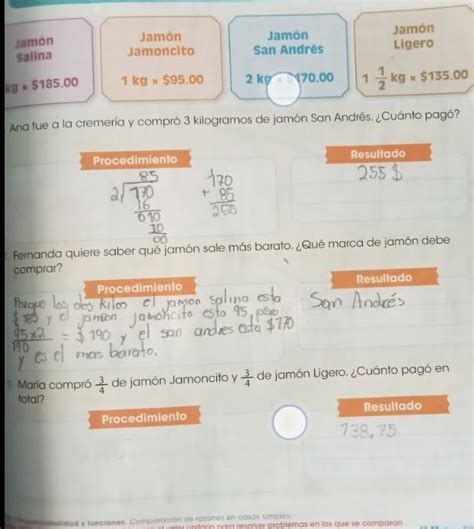 Jamón
Salina
kg x $185.00
Jamón
Jamoncito
1 kg x $95.00
Jamón
San Andrés
2 kg x $170.00
Jamón
Ligero
1 1/2 kg x $135.00
Ana fue a la cremería y compró 3 kilogramos de jamón San Andrés. ¿Cuánto pagó?
Procedimiento
Resultado
85
2√170
16
010
10
00
170
+ 85
255
255 $
Fernanda quiere saber qué jamón sale más barato. ¿Qué marca de jamón debe
comprar?
Procedimiento
Resultado
Porque los dos kilos el jamon salina esta
y el jamon jamoncito esta 95, pero
95x2 = $190, y el san andres esta $170
190
y es el mas barato.
San Andrés
María compró 3/4 de jamón Jamoncito y 3/4 de jamón Ligero. ¿Cuánto pagó en
total?
Procedimiento
Resultado
138.75
y funciones. Comparación de razones en casos simples.
unitario para resolver problemas en los que se comparan